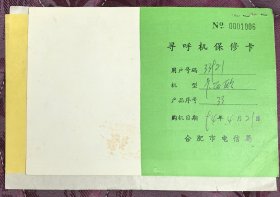 № 0001006
寻呼机保修卡
用户号码 33921
机型
产品序号 33
购机日期 94年4月21日
合肥市电信局